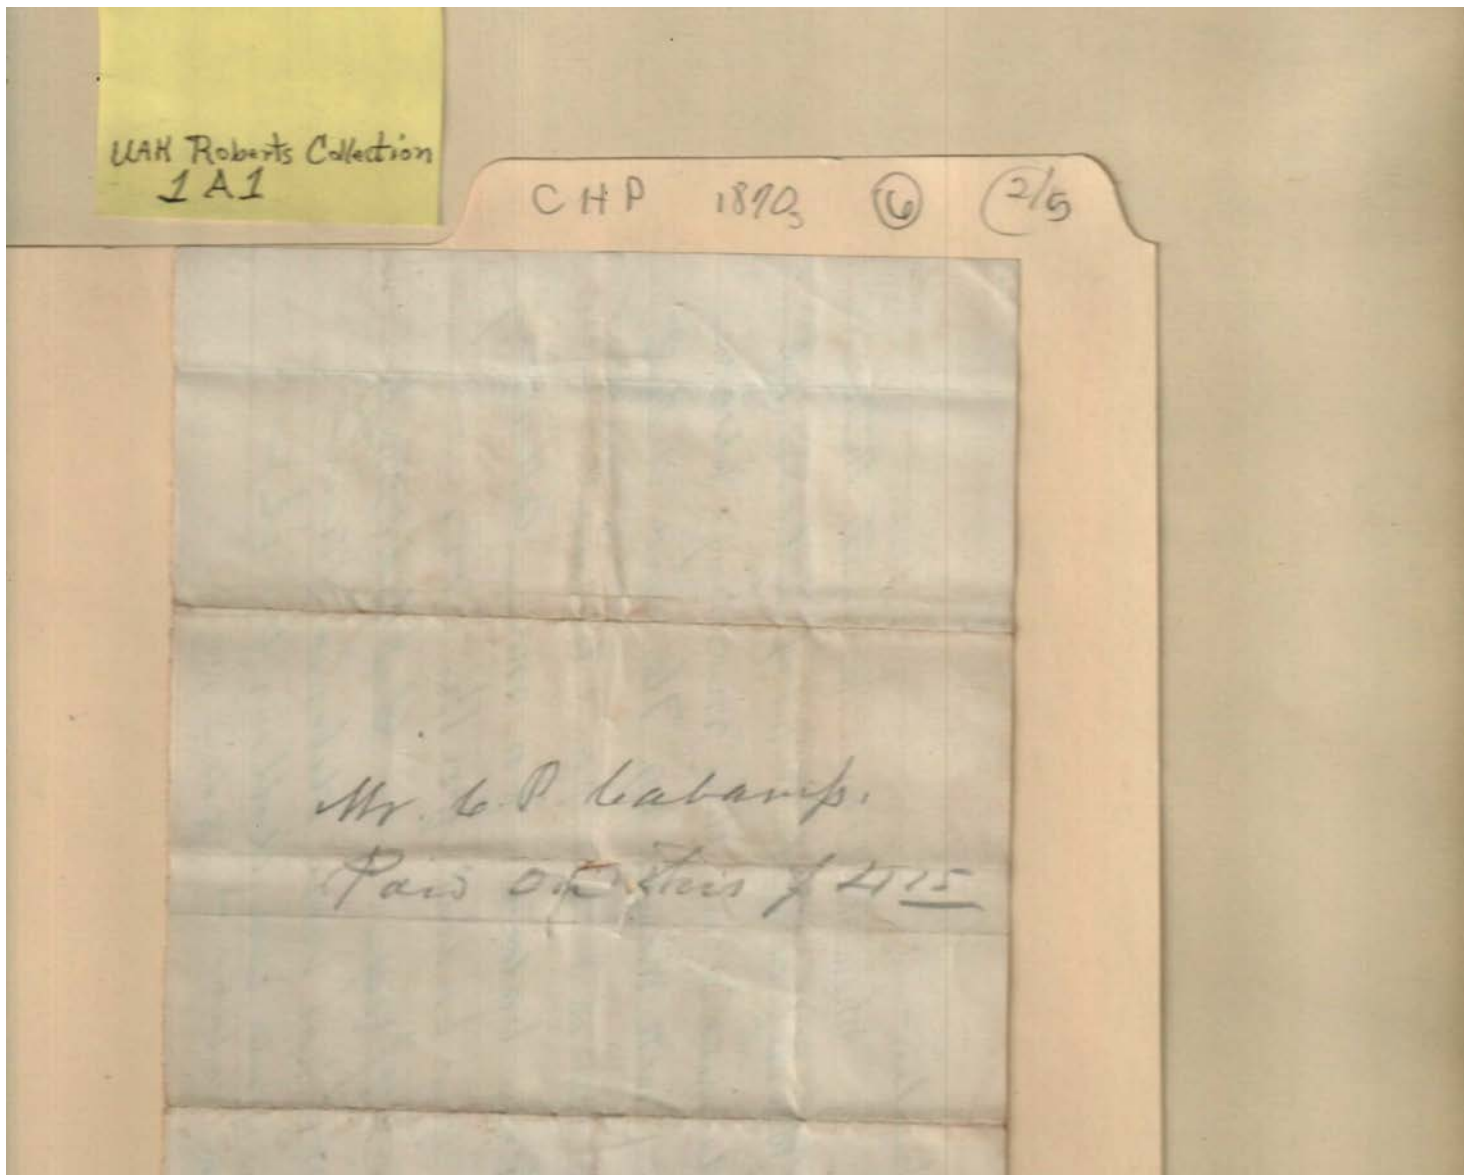 UAH Roberts Collection
1 A 1
CHP 1870s 6 2/5
Mr. C P Cabaniss.
Paid on this $